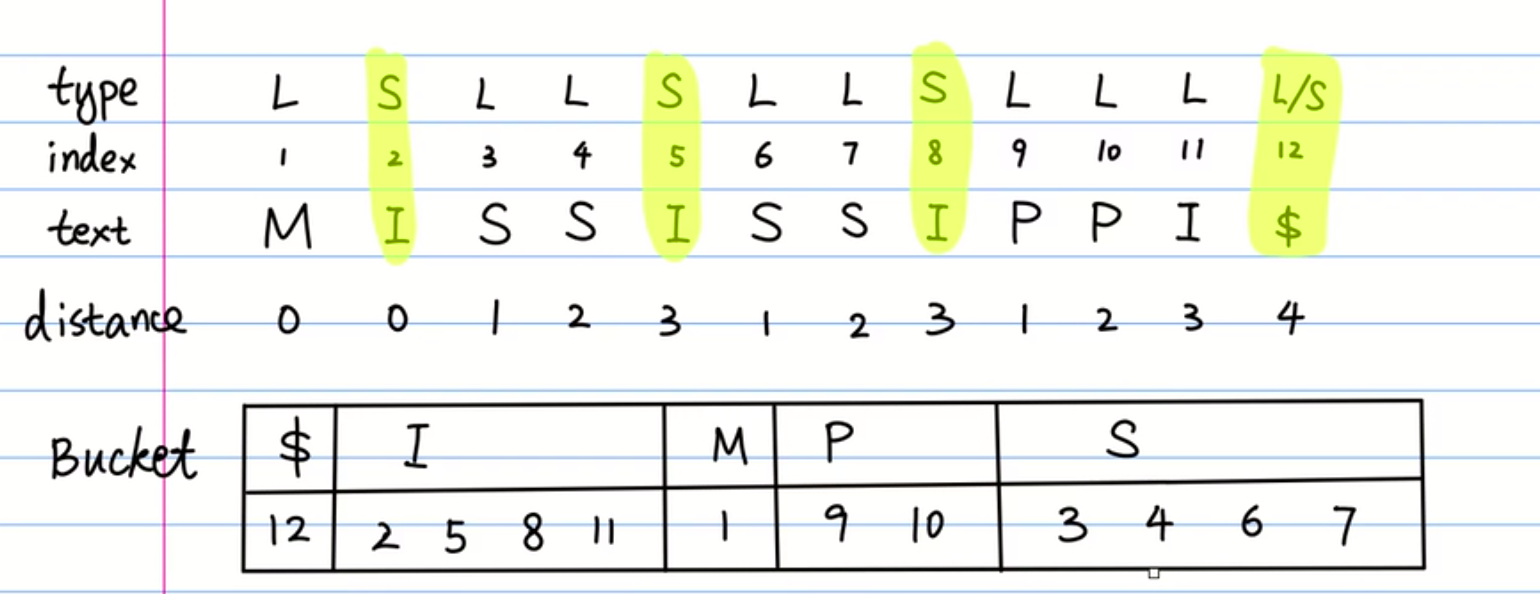 type L S L L S L L S L L L L/S
index 1 2 3 4 5 6 7 8 9 10 11 12
text M I S S I S S I P P I $
distance 0 0 1 2 3 1 2 3 1 2 3 4
Bucket $ I M P S
12 2 5 8 11 1 9 10 3 4 6 7